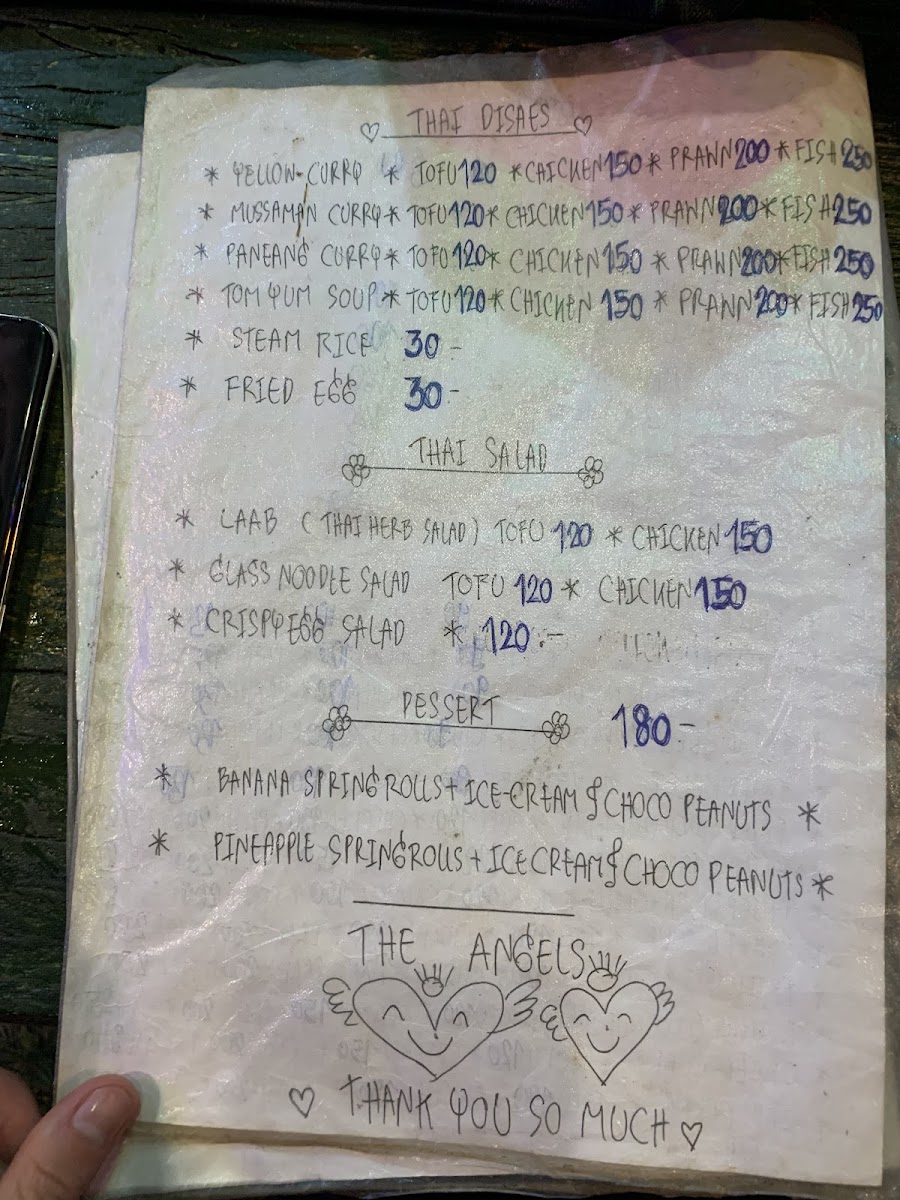 THAI DISHES
* YELLOW CURRY * TOFU 120 * CHICKEN 150 * PRAWN 200 * FISH 250
* MUSSAMAN CURRY * TOFU 120 * CHICKEN 150 * PRAWN 200 * FISH 250
* PANEANG CURRY * TOFU 120 * CHICKEN 150 * PRAWN 200 * FISH 250
* TOM YUM SOUP * TOFU 120 * CHICKEN 150 * PRAWN 200 * FISH 250
* STEAM RICE 30 -
* FRIED EGG 30 -
THAI SALAD
* LAAB (THAI HERB SALAD) TOFU 120 * CHICKEN 150
* GLASS NOODLE SALAD TOFU 120 * CHICKEN 150
* CRISPY EGG SALAD * 120 .-
DESSERT 180 -
* BANANA SPRING ROLLS + ICE-CREAM & CHOCO PEANUTS *
* PINEAPPLE SPRING ROLLS + ICE CREAM & CHOCO PEANUTS *
THE ANGELS
THANK YOU SO MUCH